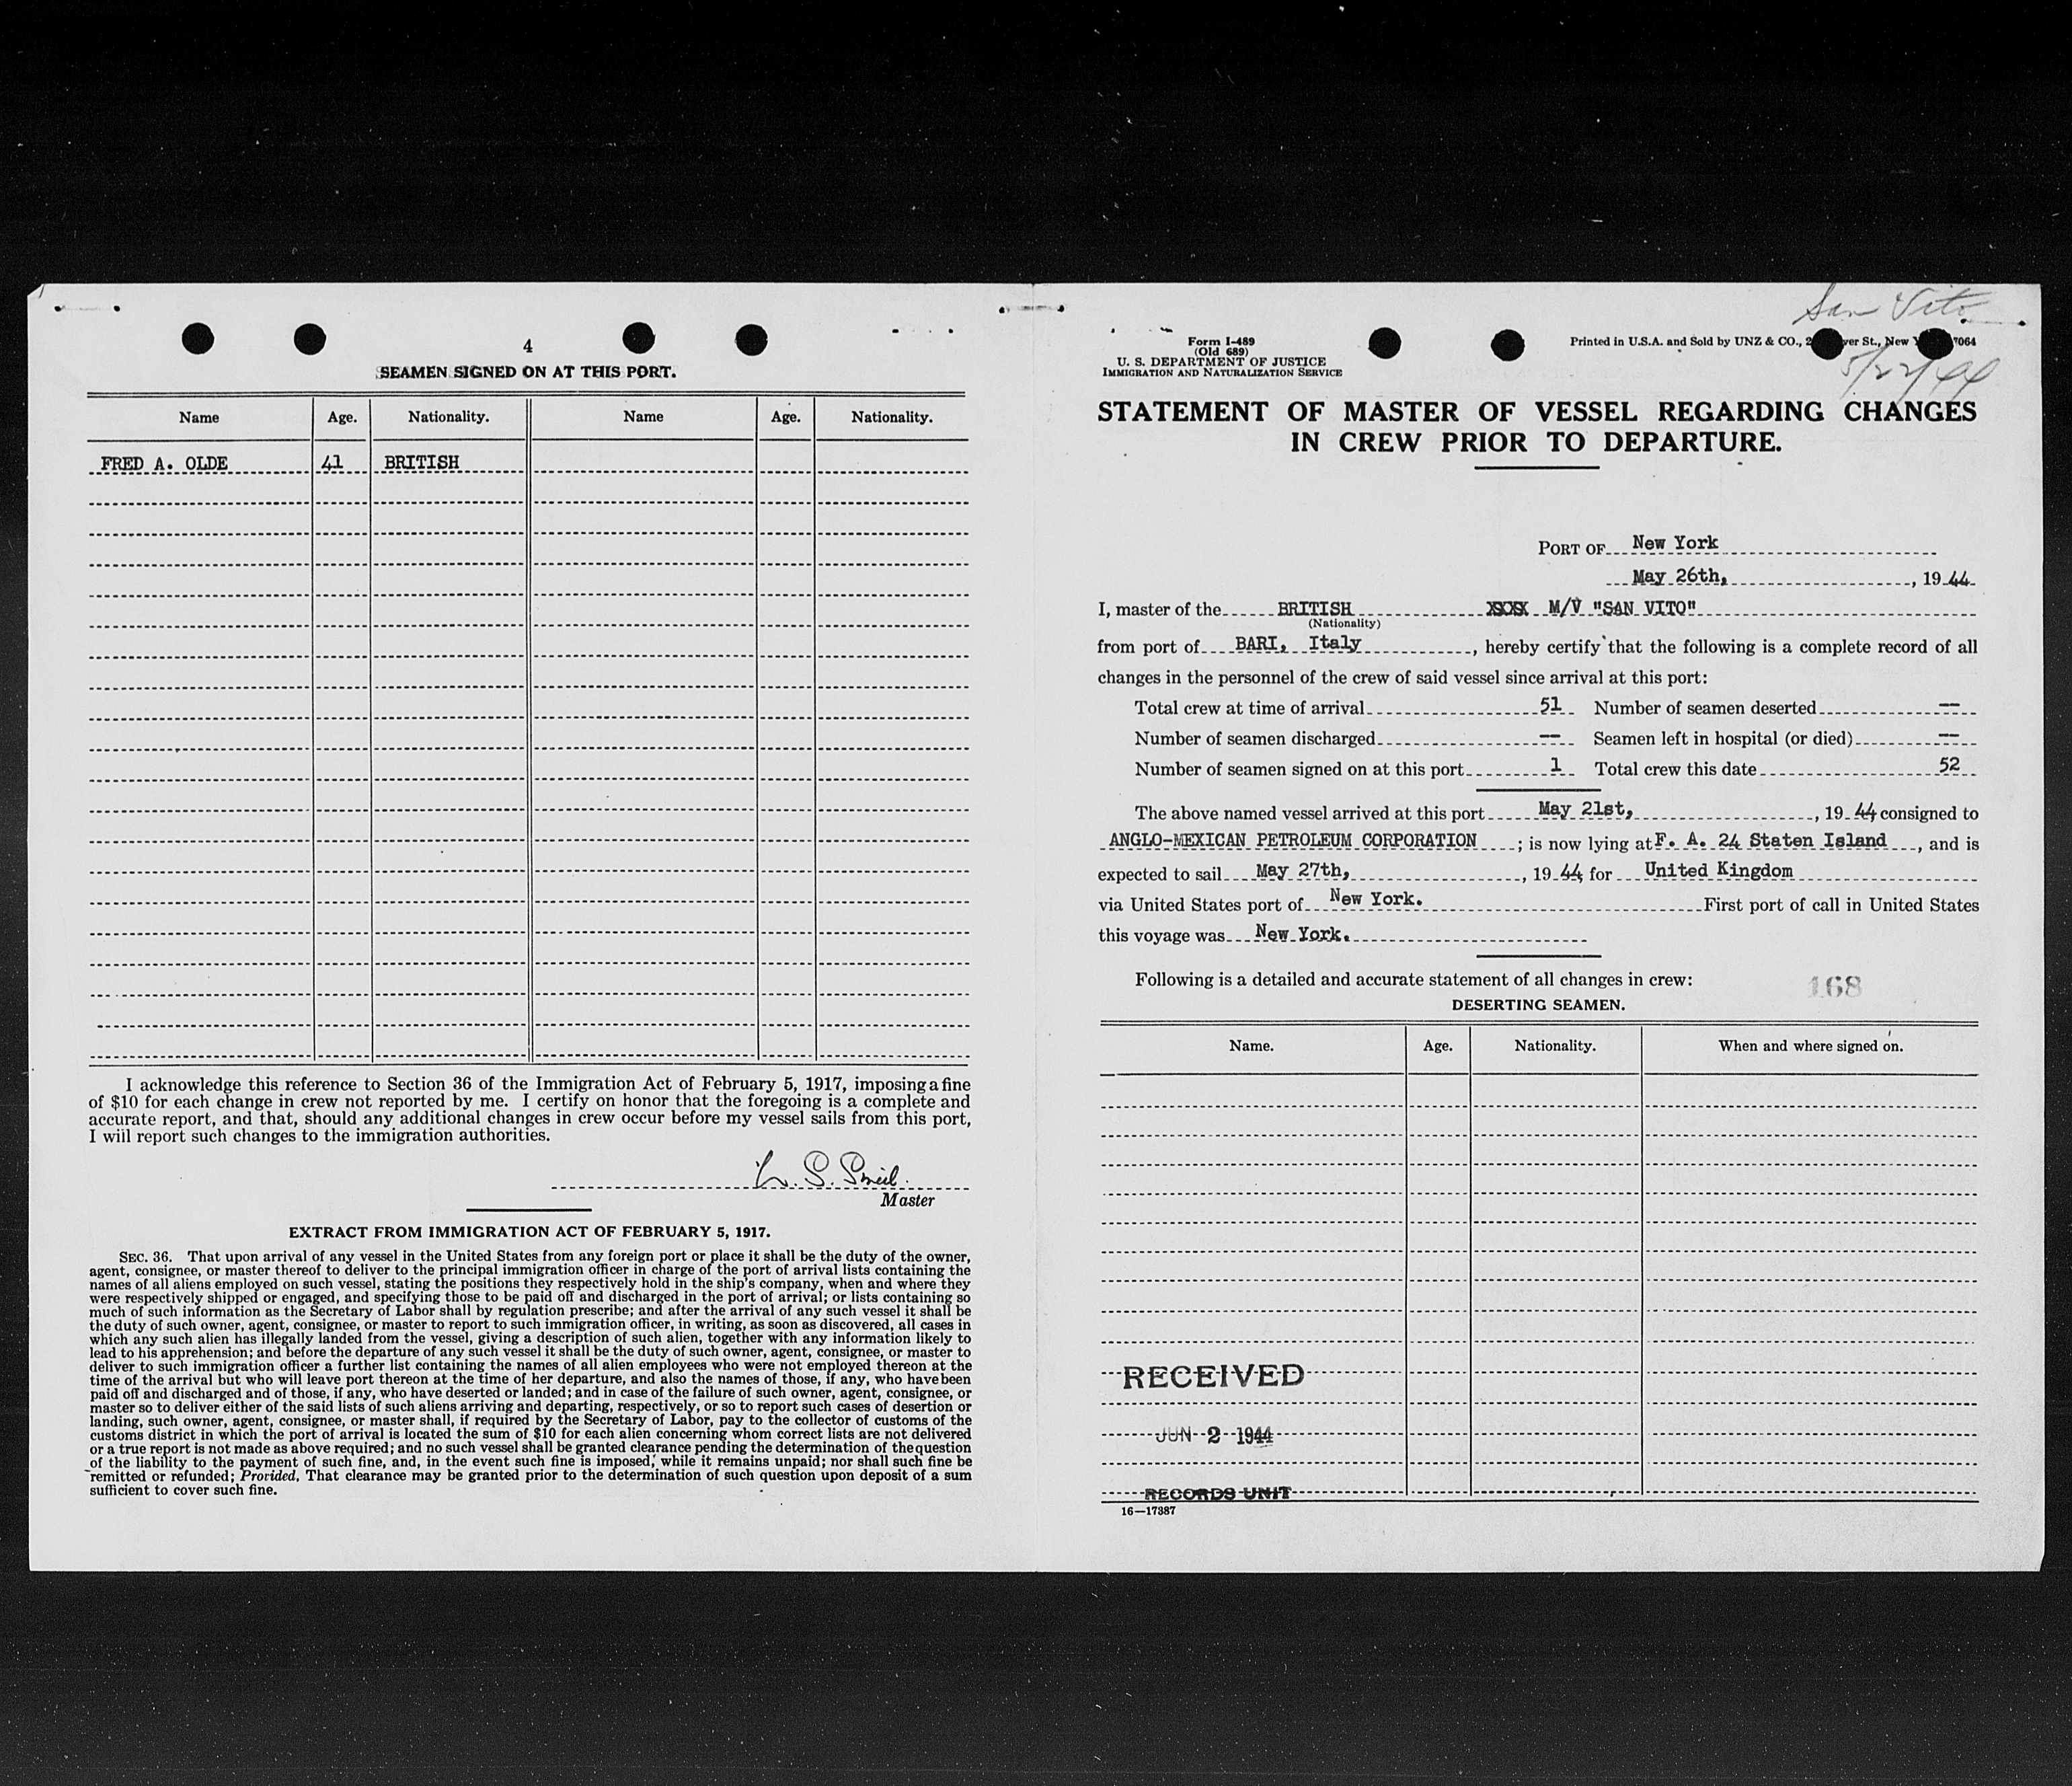 4
SEAMEN SIGNED ON AT THIS PORT.
Name Age. Nationality. Name Age. Nationality.
FRED A. OLDE 41 BRITISH
I acknowledge this reference to Section 36 of the Immigration Act of February 5, 1917, imposing a fine
of $10 for each change in crew not reported by me. I certify on honor that the foregoing is a complete and
accurate report, and that, should any additional changes in crew occur before my vessel sails from this port,
I will report such changes to the immigration authorities.
Master
EXTRACT FROM IMMIGRATION ACT OF FEBRUARY 5, 1917.
SEC. 36. That upon arrival of any vessel in the United States from any foreign port or place it shall be the duty of the owner,
agent, consignee, or master thereof to deliver to the principal immigration officer in charge of the port of arrival lists containing the
names of all aliens employed on such vessel, stating the positions they respectively hold in the ship's company, when and where they
were respectively shipped or engaged, and specifying those to be paid off and discharged in the port of arrival; or lists containing so
much of such information as the Secretary of Labor shall by regulation prescribe; and after the arrival of any such vessel it shall be
the duty of such owner, agent, consignee, or master to report to such immigration officer, in writing, as soon as discovered, all cases in
which any such alien has illegally landed from the vessel, giving a description of such alien, together with any information likely to
lead to his apprehension; and before the departure of any such vessel it shall be the duty of such owner, agent, consignee, or master to
deliver to such immigration officer a further list containing the names of all alien employees who were not employed thereon at the
time of the arrival but who will leave port thereon at the time of her departure, and also the names of those, if any, who have been
paid off and discharged and of those, if any, who have deserted or landed; and in case of the failure of such owner, agent, consignee, or
master so to deliver either of the said lists of such aliens arriving and departing, respectively, or so to report such cases of desertion or
landing, such owner, agent, consignee, or master shall, if required by the Secretary of Labor, pay to the collector of customs of the
customs district in which the port of arrival is located the sum of $10 for each alien concerning whom correct lists are not delivered
or a true report is not made as above required; and no such vessel shall be granted clearance pending the determination of the question
of the liability to the payment of such fine, and, in the event such fine is imposed, while it remains unpaid; nor shall such fine be
remitted or refunded; Provided, That clearance may be granted prior to the determination of such question upon deposit of a sum
sufficient to cover such fine.
San Vito
Form I-489
(Old 689)
U. S. DEPARTMENT OF JUSTICE
IMMIGRATION AND NATURALIZATION SERVICE
Printed in U.S.A. and Sold by UNZ & CO., 2 ver St., New Y 7064
5/22/44
STATEMENT OF MASTER OF VESSEL REGARDING CHANGES
IN CREW PRIOR TO DEPARTURE.
PORT OF New York
May 26th, , 19 44
I, master of the BRITISH XXXX M/V "SAN VITO"
(Nationality)
from port of BARI, Italy , hereby certify that the following is a complete record of all
changes in the personnel of the crew of said vessel since arrival at this port:
Total crew at time of arrival 51 Number of seamen deserted --
Number of seamen discharged -- Seamen left in hospital (or died) --
Number of seamen signed on at this port 1 Total crew this date 52
The above named vessel arrived at this port May 21st, , 19 44 consigned to
ANGLO-MEXICAN PETROLEUM CORPORATION ; is now lying at F. A. 24 Staten Island , and is
expected to sail May 27th, , 19 44 for United Kingdom
via United States port of New York. First port of call in United States
this voyage was New York.
Following is a detailed and accurate statement of all changes in crew:
168
DESERTING SEAMEN.
Name. Age. Nationality. When and where signed on.
RECEIVED
JUN 2 1944
RECORDS UNIT
16—17387